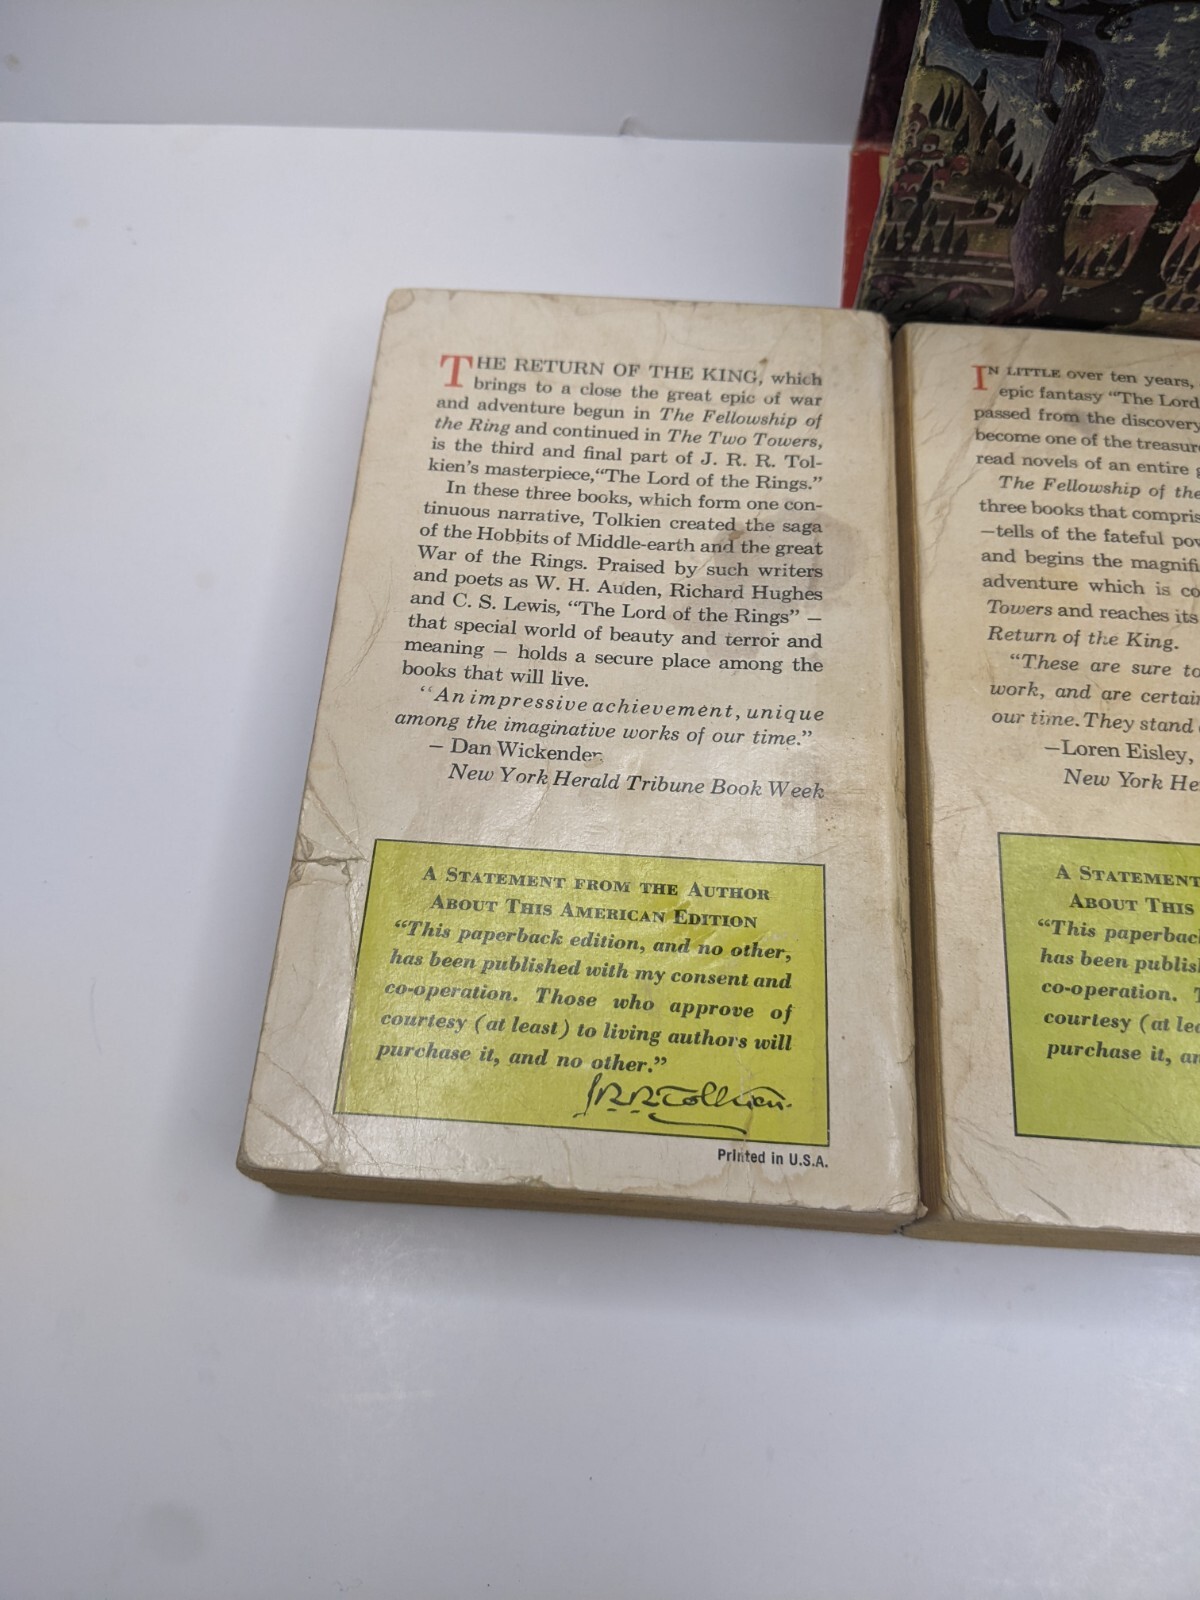 THE RETURN OF THE KING, which
brings to a close the great epic of war
and adventure begun in The Fellowship of
the Ring and continued in The Two Towers,
is the third and final part of J. R. R. Tol-
kien's masterpiece,"The Lord of the Rings."
In these three books, which form one con-
tinuous narrative, Tolkien created the saga
of the Hobbits of Middle-earth and the great
War of the Rings. Praised by such writers
and poets as W. H. Auden, Richard Hughes
and C. S. Lewis, "The Lord of the Rings" —
that special world of beauty and terror and
meaning — holds a secure place among the
books that will live.
"An impressive achievement, unique
among the imaginative works of our time."
— Dan Wickenden
New York Herald Tribune Book Week
A STATEMENT FROM THE AUTHOR
ABOUT THIS AMERICAN EDITION
"This paperback edition, and no other,
has been published with my consent and
co-operation. Those who approve of
courtesy (at least) to living authors will
purchase it, and no other."
J.R.R. Tolkien.
Printed in U.S.A.
IN LITTLE over ten years,
epic fantasy "The Lord
passed from the discovery
become one of the treasure
read novels of an entire
The Fellowship of the
three books that compris
—tells of the fateful pow
and begins the magnifi
adventure which is co
Towers and reaches its
Return of the King.
"These are sure to
work, and are certain
our time. They stand
—Loren Eisley,
New York He
A STATEMENT
ABOUT THIS
"This paperbac
has been publis
co-operation.
courtesy (at lea
purchase it, an